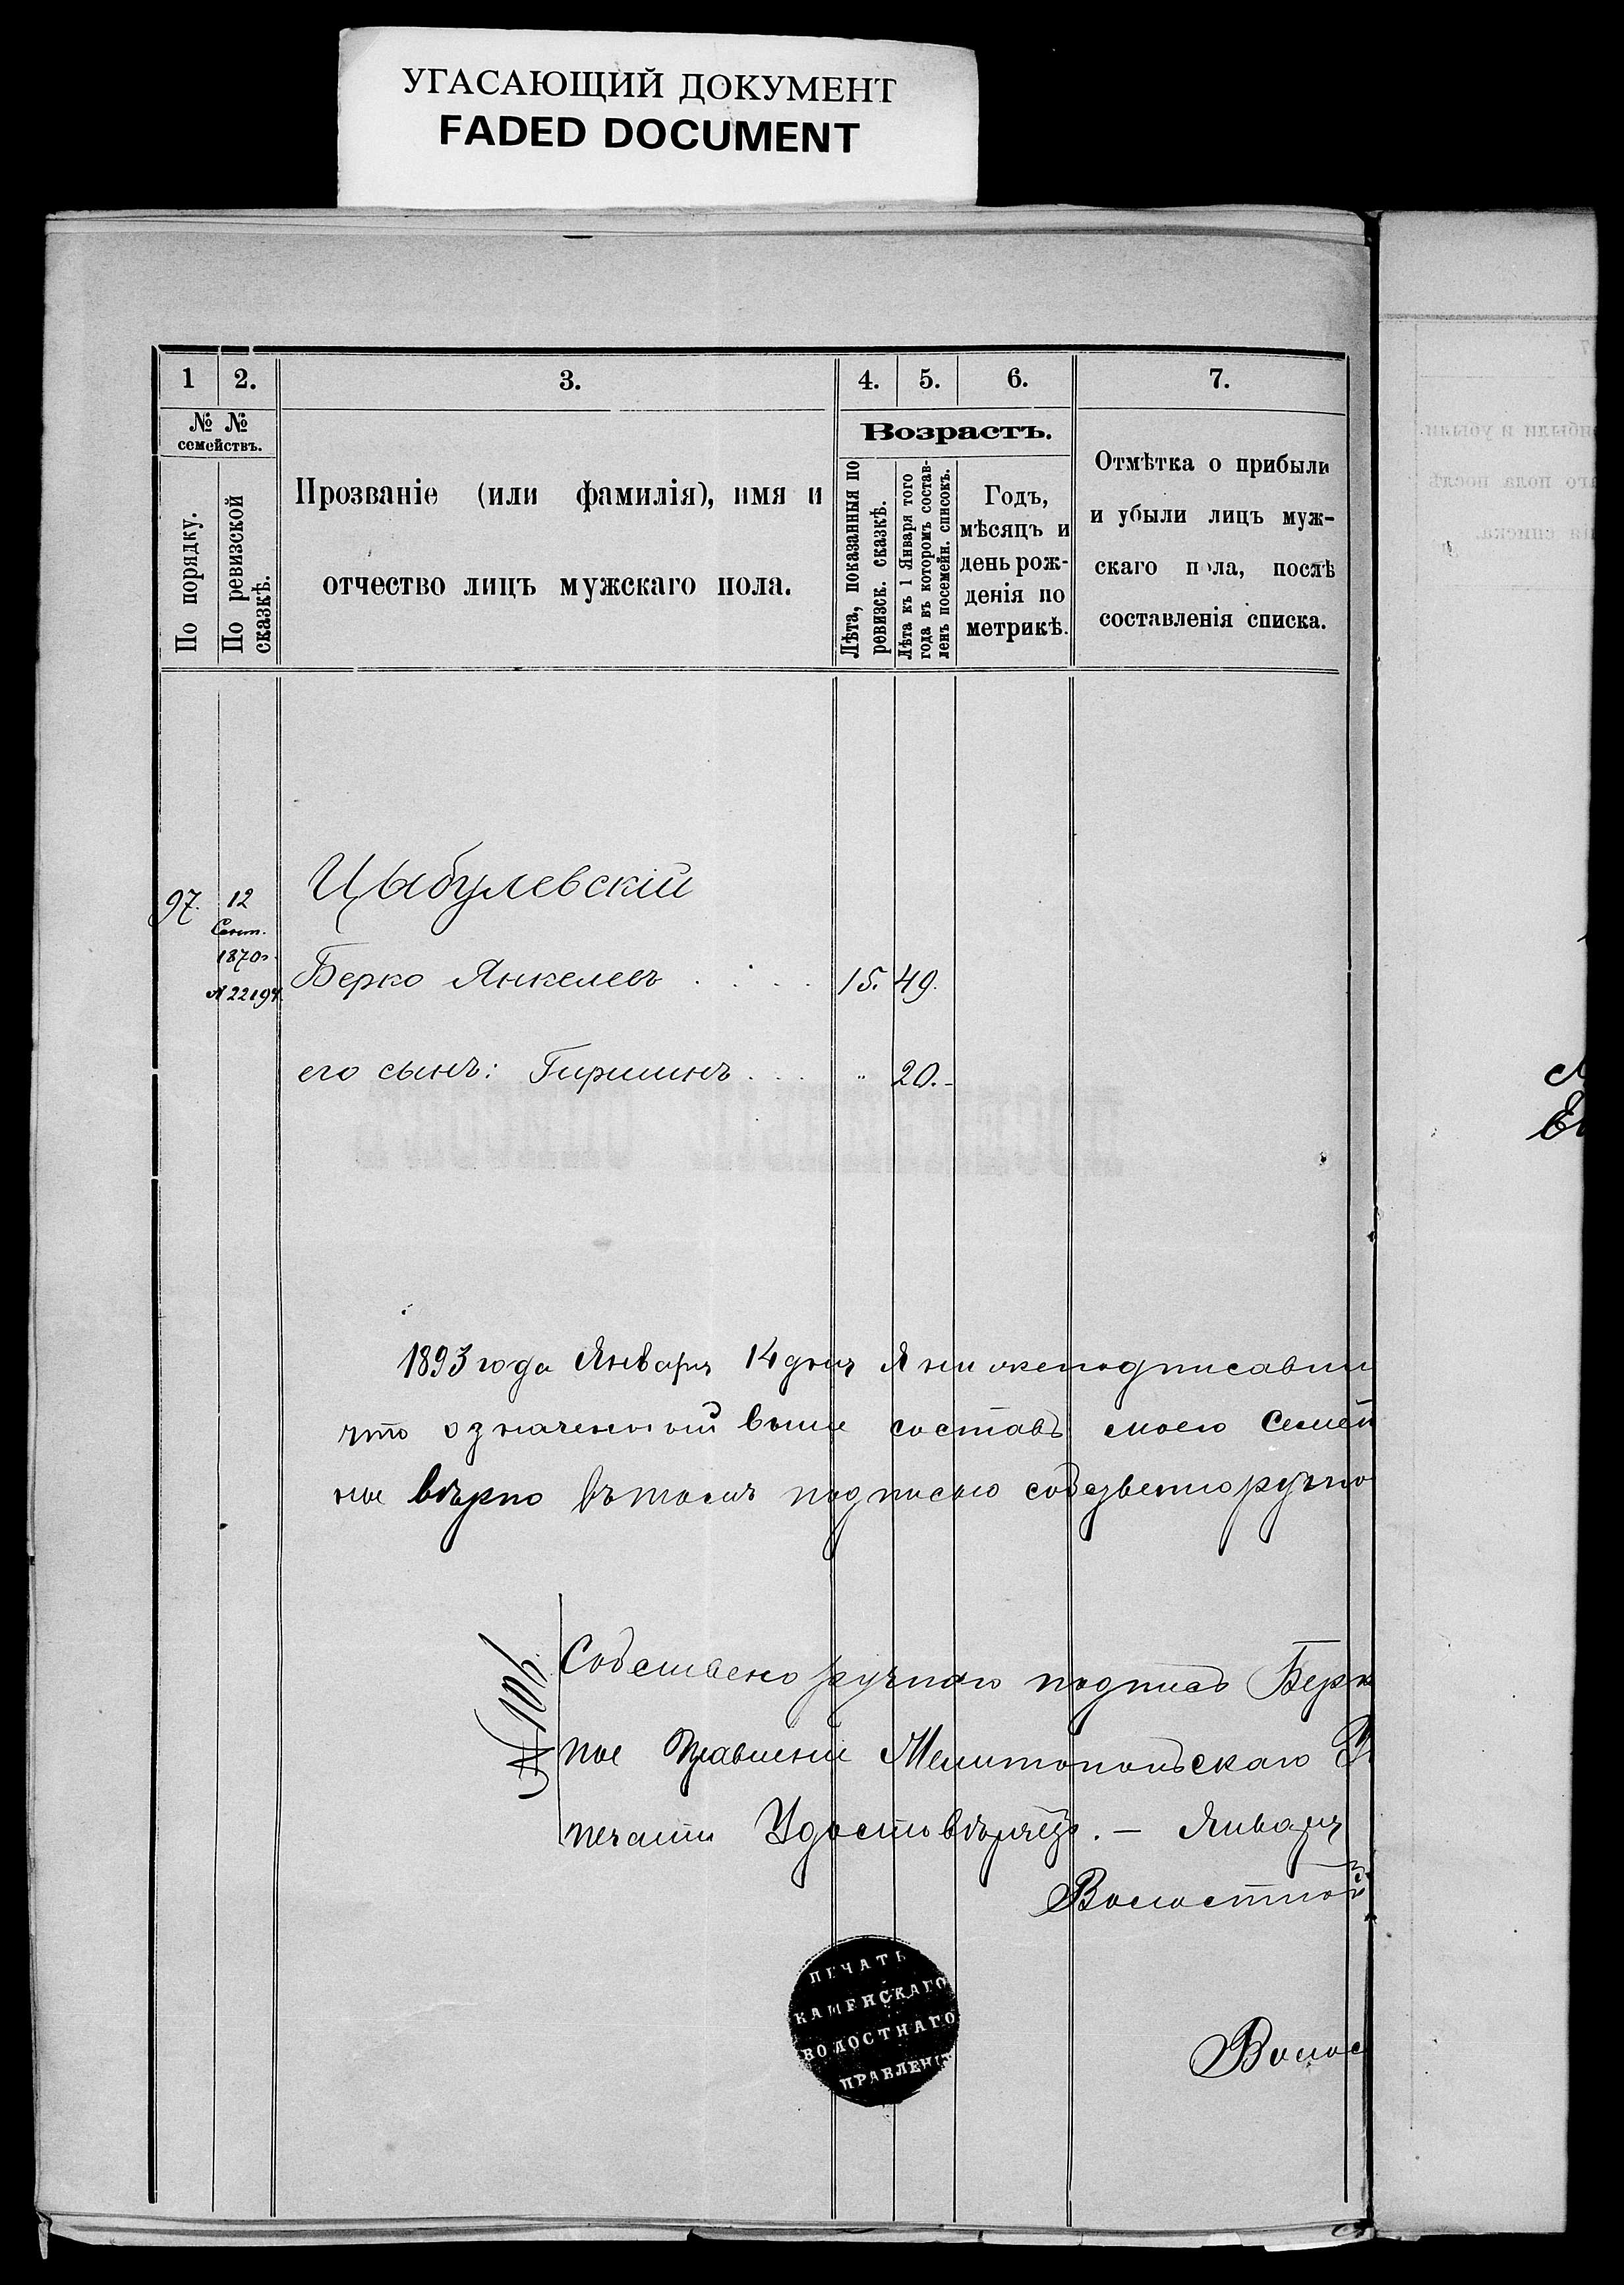 УГАСАЮЩИЙ ДОКУМЕНТ
FADED DOCUMENT
1 2. 3. 4. 5. 6. 7.
№ №
семействъ.
По порядку.
По ревизской
сказкѣ.
Прозваніе (или фамилія), имя и
отчество лицъ мужскаго пола.
Возрастъ.
Лѣта, показанныя по
ревизск. сказкѣ.
Лѣта къ 1 Января того
года въ которомъ состав-
ленъ посемейн. списокъ.
Годъ,
мѣсяцъ и
день рож-
денія по
метрикѣ.
Отмѣтка о прибыли
и убыли лицъ муж-
скаго пола, послѣ
составленія списка.
97. 12 Цыбулевскій
Сент.
1870г.
№ 22194 Берко Янкелевъ . . . . 15. 49.
его сынъ: Гиршинъ . . . „ 20.-
1893 года Января 14 дня Я нижеподписавши
что означенный выше составъ моего Семей
но вѣрно въ томъ подписью
№ 106
Собственоручною подпись Берк
ное Правленіе Мелитопольскаго У
печати Удостовѣряетъ. — Января
Волостной
ПЕЧАТЬ
КАМЕНСКАГО
ВОЛОСТНАГО
ПРАВЛЕНІ
Волос